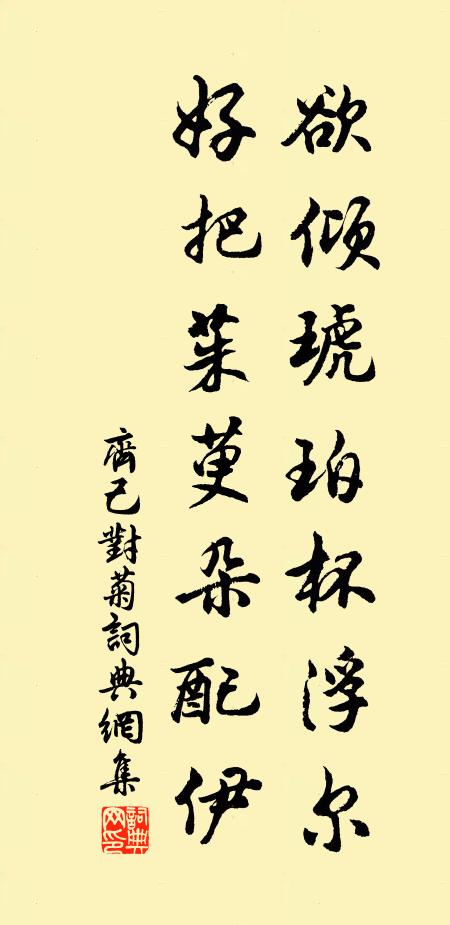 欲倾琥珀杯浮尔
好把茱萸朵配伊
齊己對菊詞典網集
詞典网印